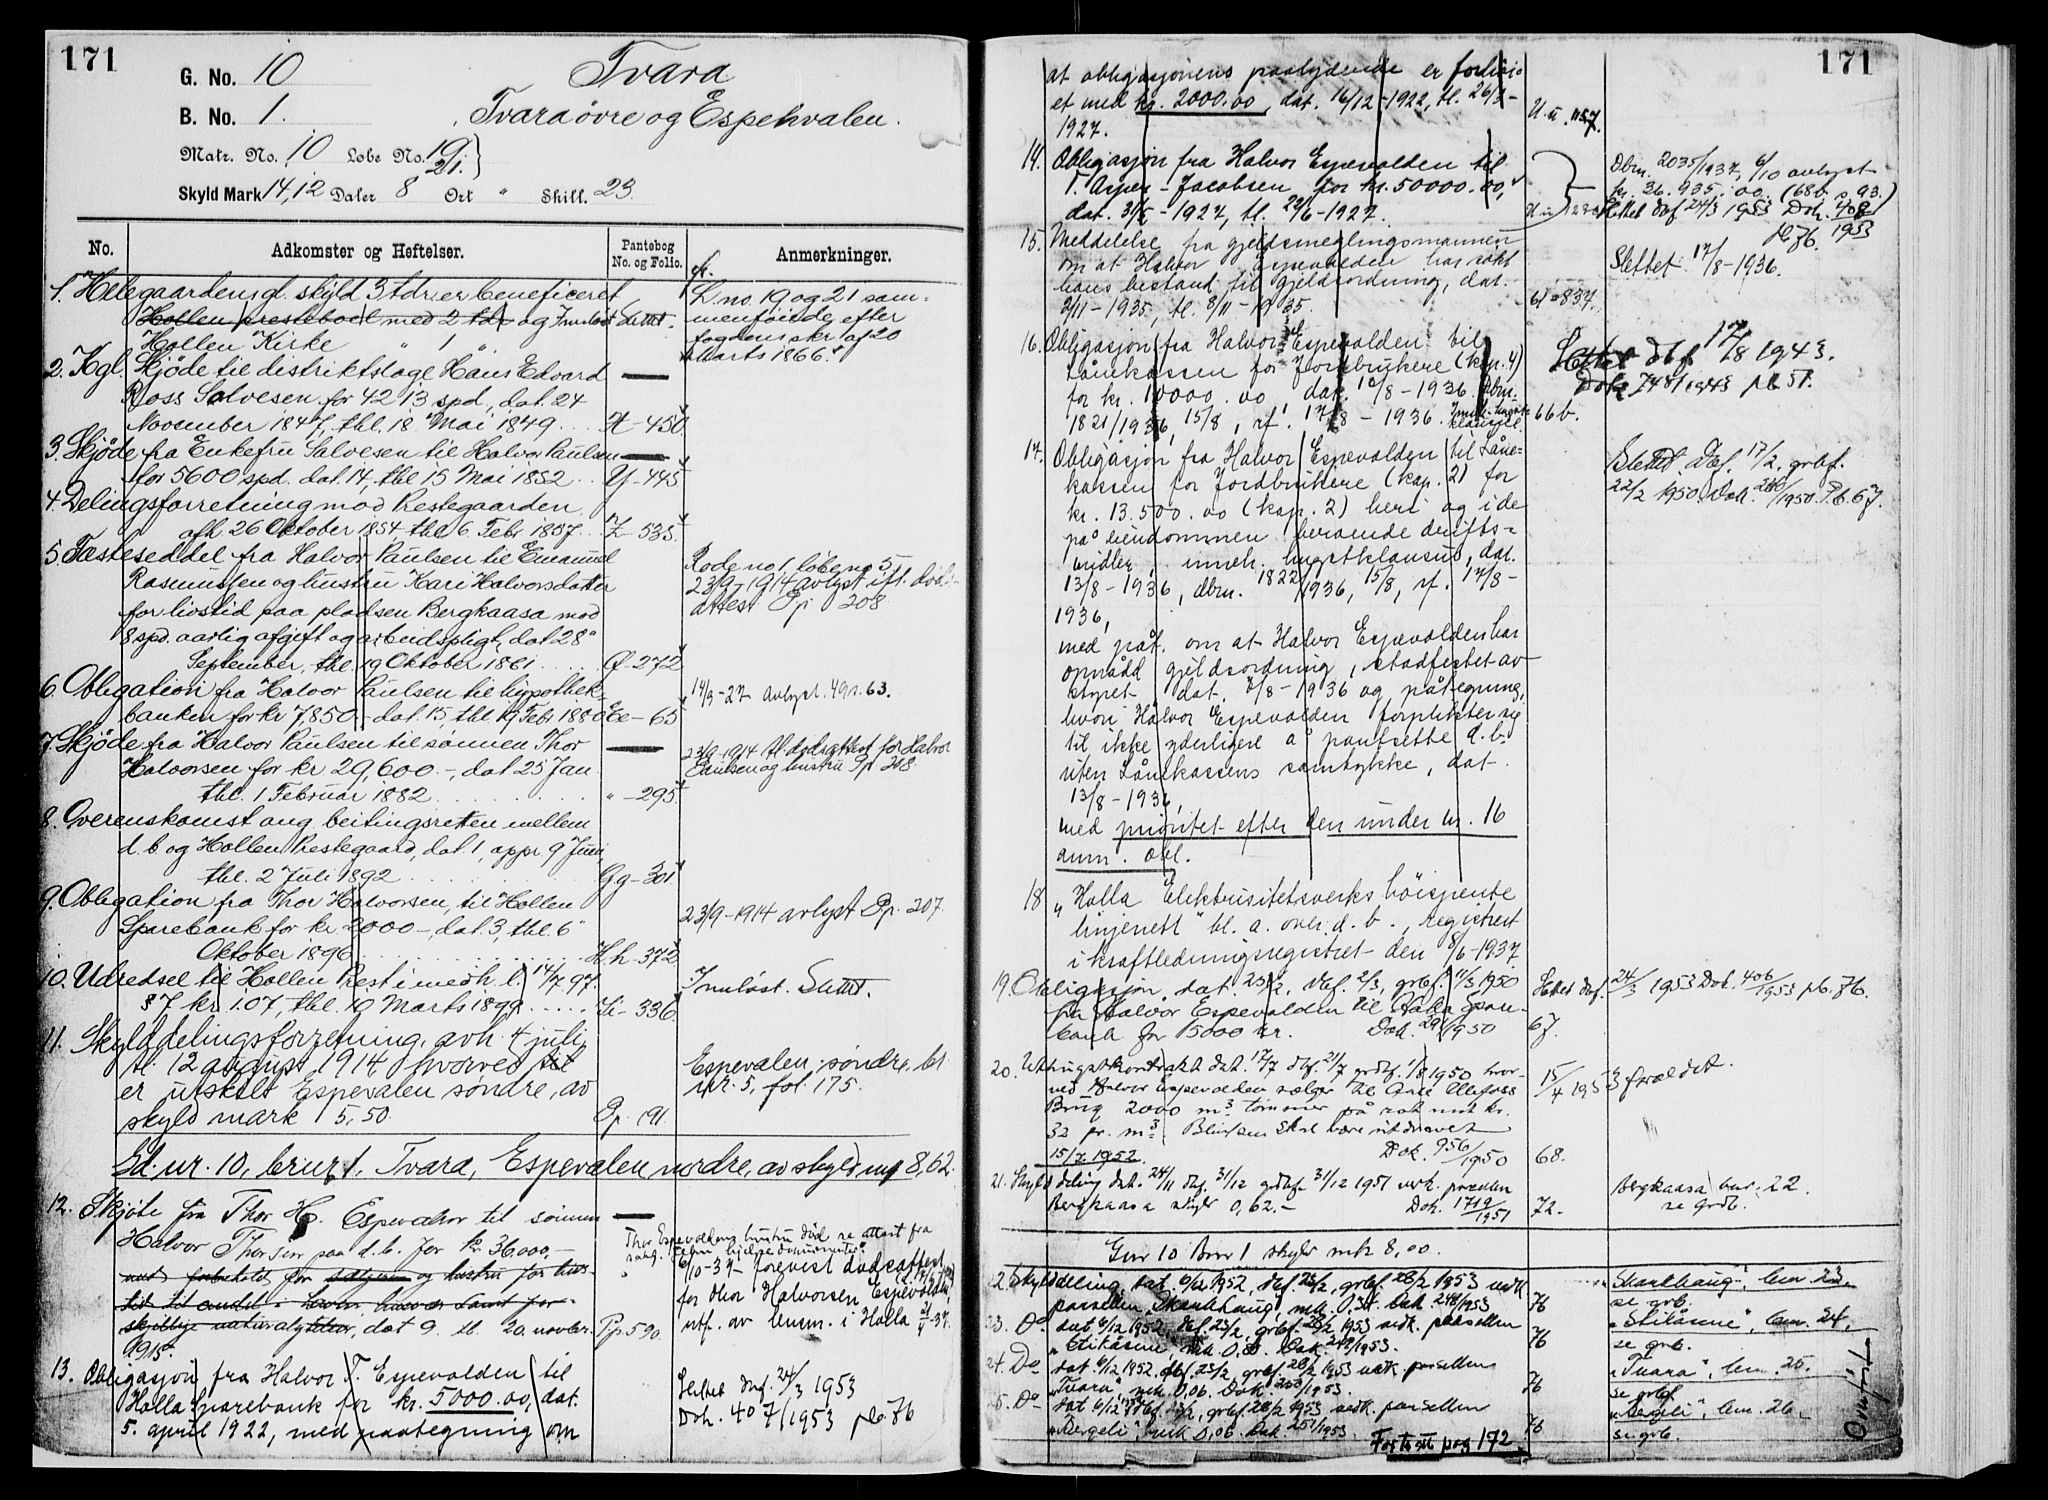 171
G. No. 10
Tvara
B. No. 1.
Tvaraøvre og Espehvalen.
Matr. No. 10 Lobe No. 19
21.
Skyld Mark 14,12 Daler 8 Ort " Skill. 23
No.
Adkomster og Heftelser.
Pantebog
No. og Folio.
Anmerkninger.
1. Helegaardens gl. skyld 3 tdr. er beneficeret
Hollen prestebol med 2 tdr og
Hollen Kirke " 1 "
L. no. 19 og 21 sam-
menføiede efter
fogdens skr. af 20
Marts 1866.
2. Kgl. Skjøde til distriktslæge Hans Edvard
Ross Salvesen for 4213 spd., dat. 24
November 1847, thl. 18 Mai 1849 .... X - 450
3. Skjøde fra Enkefru Salvesen til Halvor Paulsen
for 5600 spd. dat. 14, thl 15 Mai 1852 .. Y - 445
4. Delingsforretning mod Prestegaarden
afh. 26 Oktober 1854, thl. 6. Febr 1857. Z - 535
5. Fæsteseddel fra Halvor Paulsen til Emanuel
Rasmussen og hustru Kari Halvorsdatter
for livstid paa pladsen Bergkaasa mod
8 spd. aarlig afgift og arbeidspligt, dat 28
September, thl. 19 Oktober 1861 .... - 272
Rode no 1, løbeno 5
23/9-1914 avlyst ifl. døds-
attest Pp 208
6. Obligation fra Halvor Paulsen til hypothek-
banken for kr 7,850.- dat. 15, thl 19 Febr 1880 Ee - 65
14/3-27 avlyst. 49 s. 63.
7. Skjøde fra Halvor Paulsen til sønnen Thor
Halvorsen for kr 29,600.-, dat 25 Jan
thl. 1 Februar 1882 .... " - 295
23/9-1914 tl. dødsattest for Halvor
Paulsen og hustru Pp 208
8. Overenskomst ang beitingsretten mellem
d.b og Hollen Prestegaard, dat. 1, appr. 9 Juni,
thl. 2 Juli 1892 .... Gg - 301
9. Obligation fra Thor Halvorsen, til Hollen
Sparebank for kr. 2000 -, dat. 3, thl. 6
Oktober 1896 .... Hh - 372
23/9-1914 avlyst Pp. 207
10. Udredsel til Hollen Prest i medh. l. 14/7 97
§ 7 kr 1.07, thl. 10 Marts 1899 .... Ii - 336
Innløst. Slettet.
11. Skylddelingsforretning, avh. 4 juli,
tl. 12 august 1914 hvorved
er utskilt Espevalen søndre, av
skyld mark 5,50. Pp. 191.
Espevalen, søndre, br
nr. 5, fol 175.
Gd. nr. 10, brnr 1. Tvara, Espevalen nordre, av skyld mk 8,62.
12. Skjøte fra Thor H. Espevalen til sønnen
Halvor Thorsen paa d.b. for kr 36,000,-
med forbehold for sælgeren og hustru for livs-
dat 9. tl. 20. novbr. Pp 590.
1915.
6/10-37 forevist dødsattest
for Thor Halvorsen Espevalen
utf. av lensm. i Holla
13. Obligasjon fra Halvor T. Espevalden til
Holla Sparebank for kr. 5000.00, dat.
5. april 1922, med paategning om
Slettet dbf 24/3 1953
Dok. 407/1953 pb 76
171
at obligasjonens paalydende er forhøi-
et med kr. 2000.00, dat. 16/12-1922, tl. 26/3-
1927.
14. Obligasjon fra Halvor Espevalden til
T. Asper-Jacobsen for kr. 50000.00,
dat. 31/5-1927, tl. 29/6-1927.
Dbnr. 2035/1937, 6/10 avlyst
kr. 36.935.00. (68b s 93.)
Slettet dbf 24/3 1953 Dok. 408/1953
pb 76.
15. Meddelelse fra gjeldsmeglingsmannen
om at Halvor Espevalden har søkt
hans bistand til gjeldsordning, dat.
2/11-1935, tl. 8/11-1935.
Slettet 17/8-1936.
16. Obligasjon fra Halvor Espevalden til
Lånekassen for Jordbrukere (kap. 4)
for kr. 10000.00 dat. 13/8-1936. Dbnr.
1821/1936, 15/8, rf. 17/8-1936. 66b.
Slettet dbf 17/8 1943.
Dok 748/1943 pb 51.
17. Obligasjon fra Halvor Espevalden til Låne-
kassen for Jordbrukere (kap. 2) for
kr. 13.500.00 (kap. 2) heri og i de
på eiendommen beroende drifts-
midler, inneh. hugstklausul, dat.
13/8-1936, dbnr. 1822/1936, 15/8, rf. 17/8-
1936,
med påt. om at Halvor Espevalden har
opnådd gjeldsordning, stadfestet av
styret dat. 8/8-1936 og påtegning,
hvori Halvor Espevalden forplikter sig
til ikke yderligere å pantsette d.b.
uten Lånekassens samtykke, dat.
13/8-1936,
med prioritet efter den under nr. 16
anm. obl.
Slettet Dbf. 17/2, grbf.
22/2 1950. Dok. /1950. Pb. 67.
18 "Holla Elektrisitetsverks høispente
linjenett" bl. a. over d.b., registrert
i kraftledningsregistret den 8/6-1937
19. Obligasjon dat. 23/2, dbf. 2/3, grbf. 11/3 1950
fra Halvor Espevalden til Holla Spare-
bank for 15000 kr. Dok. 291/1950 67.
Slettet dbf. 24/3 1953 Dok. 406/1953 pb. 76.
20. Uttingstkontrakt dat. 17/7 dbf. 21/7 grbf. 1/8 1950 hvor-
ved Halvor Espevalden selger til A/S Ulefoss
Brug 2000 m³ tømmer på rot mot kr.
32 pr. m³. Blinken skal være utdrevet
15/7. 1952. Dok. 956/1950 68.
15/4 1953 foreldet.
21. Skylddeling dat. 24/11 dbf. 31/12 grbf. 31/12 1951 vedk. parsellen
Bergkaasa skyld 0,62.- Dok. 1719/1951 72.
Bergkaasa bnr. 22.
se grdb.
Gnr 10 Bnr 1 skyld mk 8,00.
22. Skylddeling, dat. 6/12 1952, dbf. 23/2, grbf. 28/2 1953 vedk.
parsellen "Skaulhaug", mk. Dok. 248/1953 76
"Skaulhaug", bnr. 23
se grb.
23. Do dat 6/12 1952, dbf. 23/2, grbf. 28/2 1953 vedk. parsellen
"Stilåsene", mk. 0. Dok. 249/1953. 76
"Stilåsene", bnr. 24,
se grb.
24. Do dat. 6/12 1952, dbf 23/2, grbf 28/2 1953 vedk. parsellen
"Tvara", mk. 0,06. Dok. 250/1953. 76
"Tvara", bnr. 25.
se grbf.
25. Do dat 6/12 1952 dbf. 23/2, grbf. 28/2 1953 vedk. parsellen
"Bergeli", mk 0,06. Dok. 251/1953 76
"Bergeli", bnr. 26.
se grb.
Fortsatt pag 172.
Omført